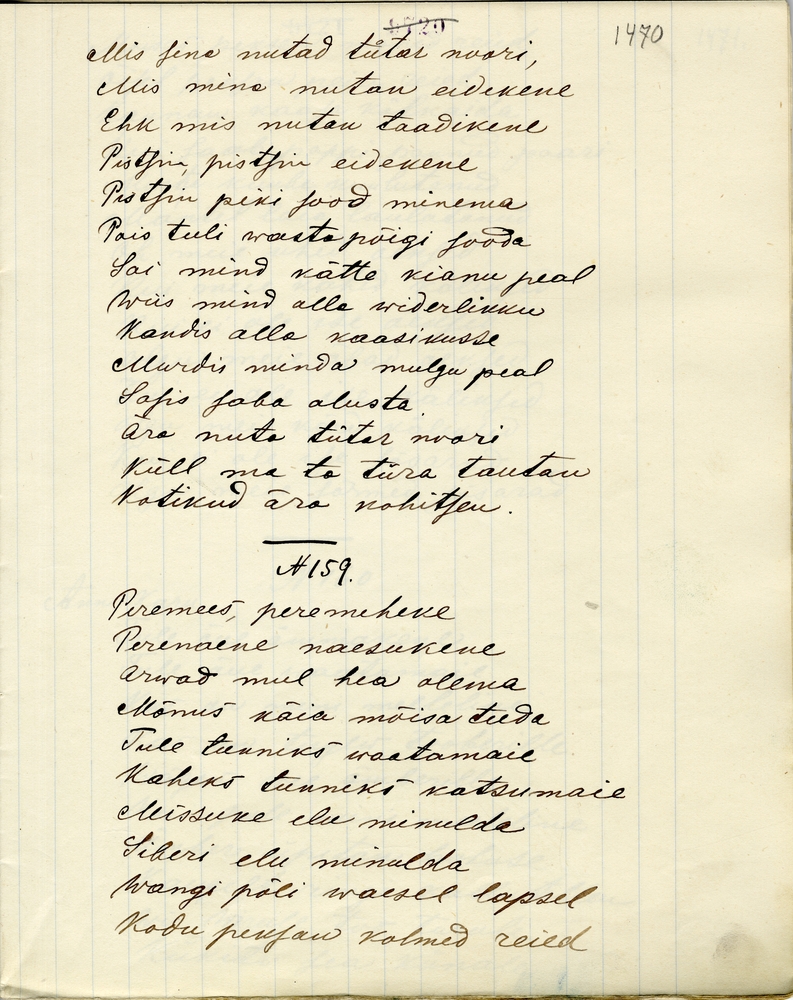 1470
Mis sina nutad tütar noori,
Mis mina nutan eidekene
Ehk mis nutan taadikene
Pistsin, pistsin eidekene
Pistsin piki sood minema
Pois tuli wasta põigi sooda
Sai mind kätte kianu peal
Wiis mind alla widerlikku
Kandis alla kaasikusse
Murdis minda mulgu peal
Sasis saba alusta.
Ära nuta tütar noori
Küll ma ta türa tautan
Kotikud ära kohitsen.
№ 159.
Peremees, peremeheke
Perenaene naesukene
Arwad mul hea olema
Mõnus käia mõisa teeda
Tule tunniks waatamaie
Kaheks tunniks katsumaie
Missuke elu minulda
Siberi elu minulda
Wangi põli waesel lapsel
Kodu peksan kolmed reied